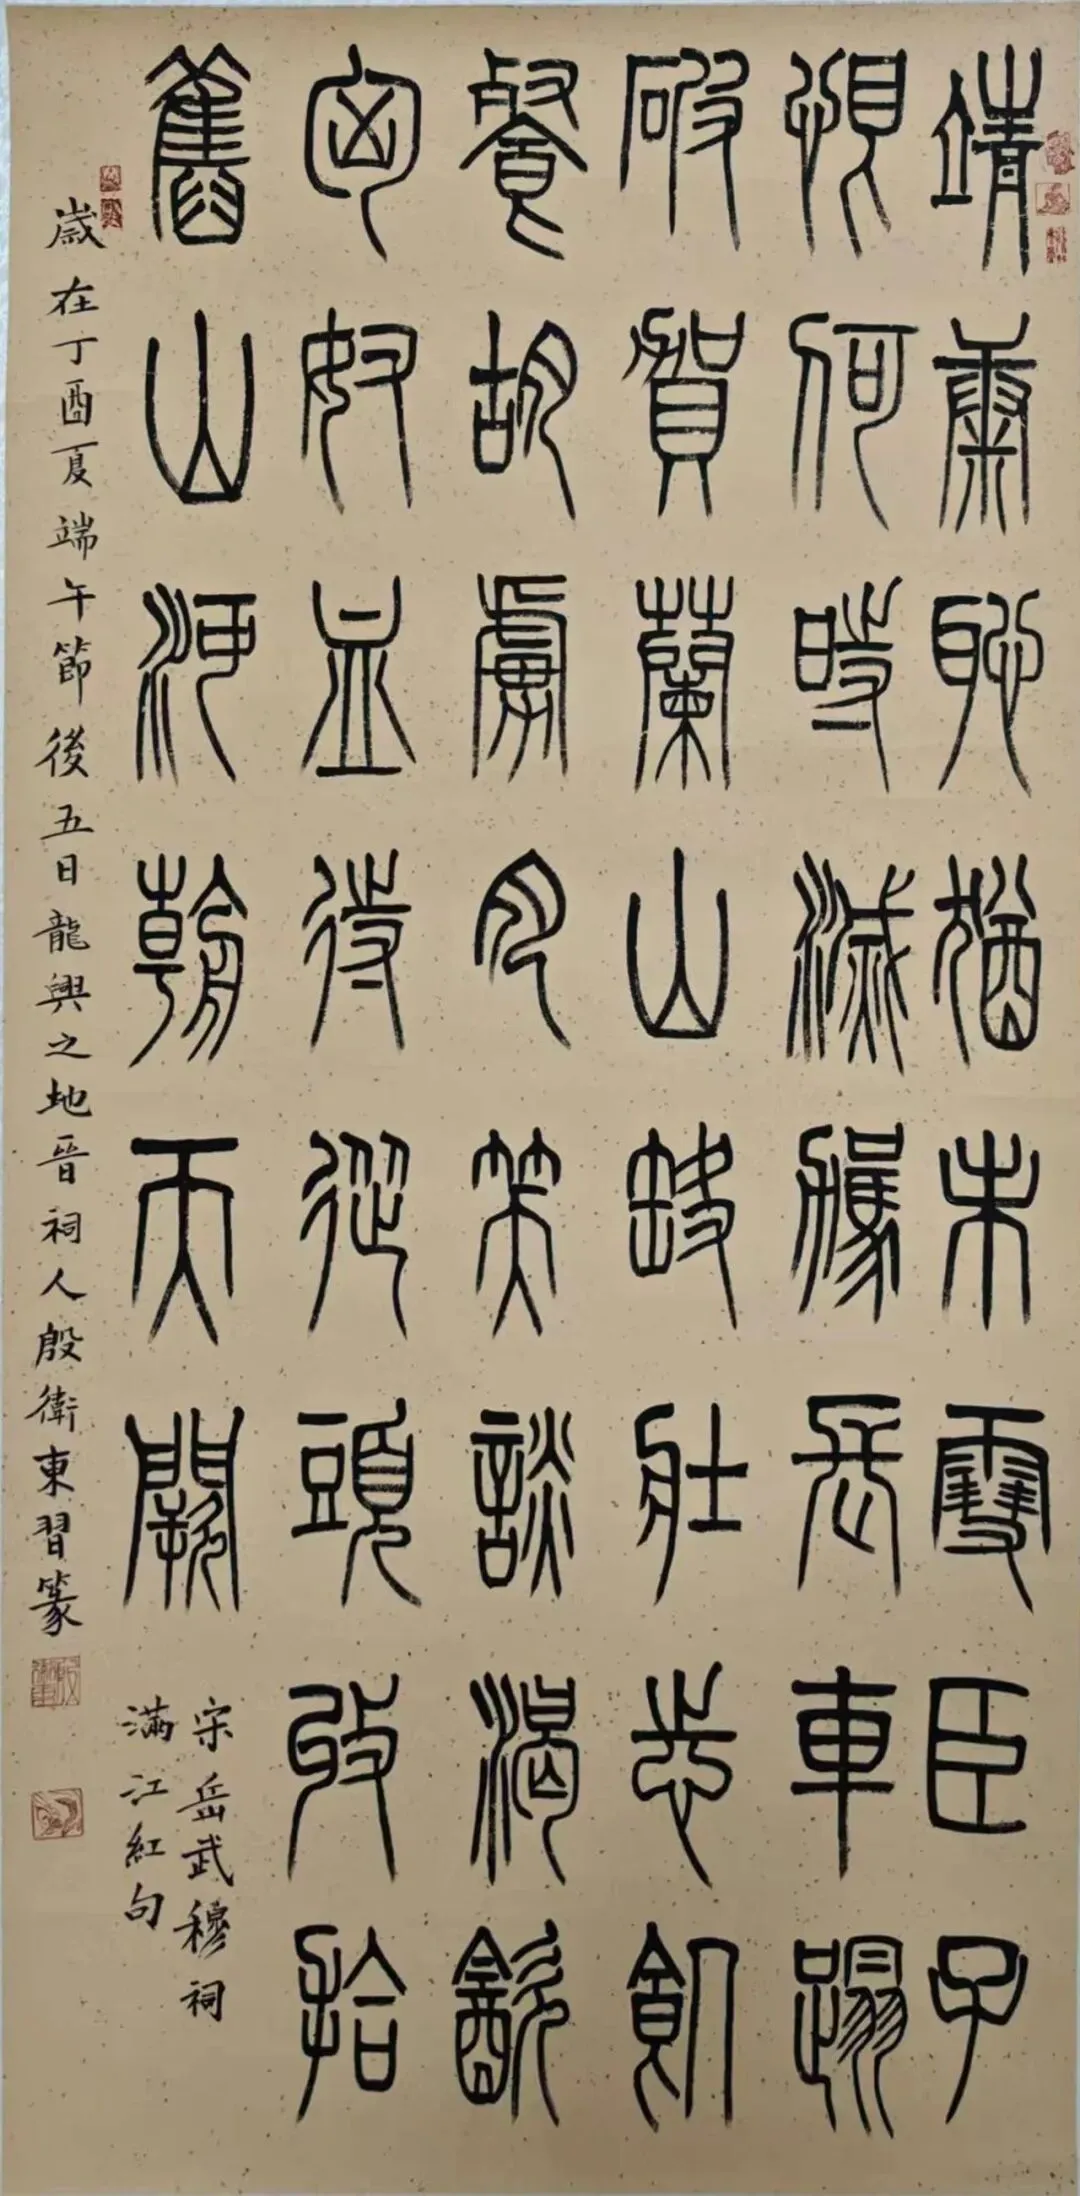 靖康恥猶未雪臣子
恨何時滅駕長車踏
破賀蘭山缺壯志飢
餐胡虜肉笑談渴飲
匈奴血待從頭收拾
舊山河朝天闕
宋岳武穆祠
滿江紅句
歲在丁酉夏端午節後五日龍興之地晉祠人殷衛東習篆